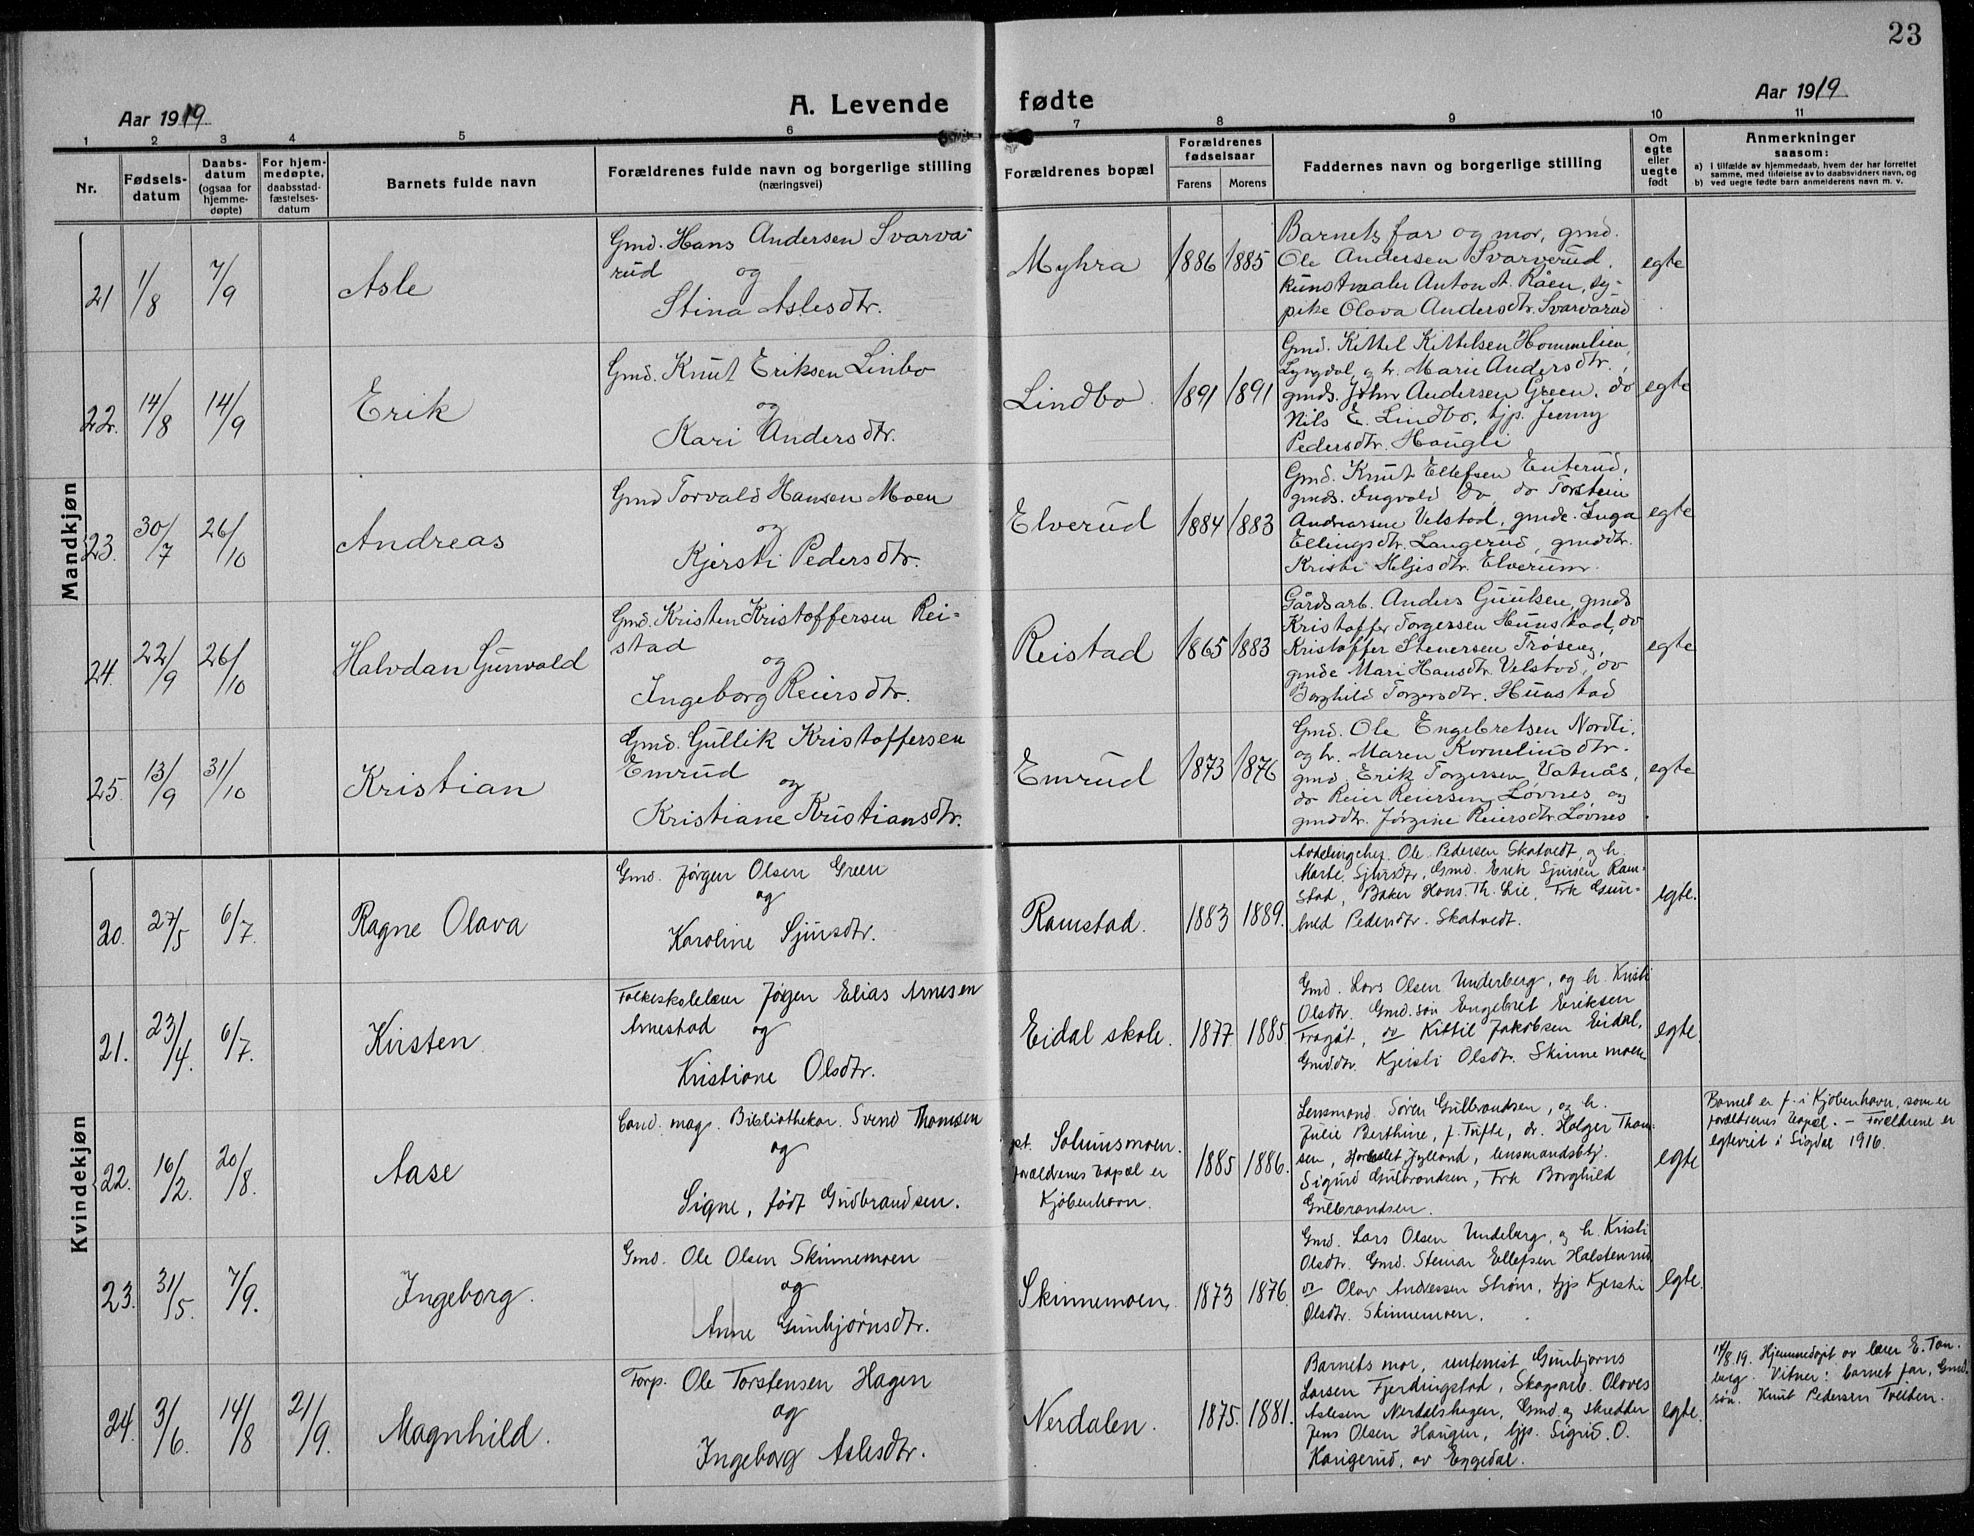 23
Aar 1919
A. Levende fødte
Aar 1919
1 2 3 4 5 6 7 8 9 10 11
Nr.
Fødsels-
datum
Daabs-
datum
(ogsaa for
hjemme-
døpte)
For hjem-
medøpte,
daabsstad-
fæstelses-
datum
Barnets fulde navn
Forældrenes fulde navn og borgerlige stilling
(næringsvei)
Forældrenes bopæl
Forældrenes
fødselsaar
Farens Morens
Faddernes navn og borgerlige stilling
Om
egte
eller
uegte
født
Anmerkninger
saasom:
a) I tilfælde av hjemmedaab, hvem der har forrettet
samme, med tilføielse av to daabsvidners navn, og
b) ved uegte fødte barn anmelderens navn m. v.
Mandkjøn
21 1/8 7/9 Asle
Gmd. Hans Andersen Svarva-
rud og
Stina Aslesdtr.
Myhra 1886 1885
Barnets far og mor, gmd.
Ole Andersen Svarverud,
kunstmaler Anton A. Råen, sy-
pike Olava Andersdtr. Svarvarud
egte
22. 14/8 14/9 Erik
Gmd. Knut Eriksen Linbo
og
Kari Andersdtr.
Lindbo 1891 1891
Gmd. Kittel Kittelsen Hommelien,
Lyngdal, og h. Marie Andersdtr.,
gmds. John Andersen Green, do
Nils E. Lindbo, tjp. Jenny
Pedersdtr. Haugli
egte
23. 30/7 26/10 Andreas
Gmd Torvald Hansen Moen
og
Kjersti Pedersdtr.
Elverud 1884 1883
Gmd. Knut Ellefsen Enterud,
gmds. Ingvald do, do Torstein
Andreassen Velstad, gmde. Inga
Ellingsdtr. Langerud, gmddtr.
Kristi Helgesdtr. Elverum.
egte
24. 22/9 26/10 Halvdan Gunvald
Gmd. Kristen Kristoffersen Rei-
stad
og
Ingeborg Reiersdtr.
Reistad 1865 1883
Gårdsarb. Anders Guulsen, gmds
Kristoffer Torgersen Hunstad, do
Kristoffer Stenersen Trøseng,
gmde Mari Hansdtr. Velstad, do
Borghild Torgersdtr. Hunstad
egte
25. 13/9 31/10 Kristian
Gmd. Gullik Kristoffersen
Emrud
og
Kristiane Kristiansdtr.
Emrud 1873 1876
Gmd. Ole Engebretsen Nordli,
og h. Maren Korneliusdtr.
gmd. Erik Torgersen Vatnås,
do Reier Reiersen Løvnes og
gmddtr. Jørgine Reiersdtr. Løvnes
egte
Kvindekjøn
20. 27/5 6/7. Ragne Olava
Gmd. Jørgen Olsen Green
og
Karoline Sjursdtr.
Ramstad. 1883 1889.
Avdelingschef. Ole Pedersen Skatvedt, og h.
Marte Sjursdtr, Gmd. Erik Sjursen Ram-
stad, Baker Hans Th. Lie, Frk Gun-
hild Pedersdtr. Skatvedt.
egte.
21. 23/4. 6/7. Kirsten
Folkeskolelærer Jørgen Elias Arnesen
Arnestad og
Kristiane Olsdtr.
Eidal skole. 1877 1885.
Gmd. Lars Olsen Underberg, og h. Kristi
Olsdtr. Gmd.søn Engebret Eriksen
Fragåt, do Kittil Jakobsen Eidal,
Gmd.dtr. Kjersti Olsdtr. Skinnemoen
egte
22. 16/2. 20/8. Aase
Cand. mag. Bibliothekar. Svend Thomsen
og
Signe, født Gudbrandsen.
pt. Solumsmoen.
forældrenes bopæl er
Kjøbenhavn.
1885 1886.
Lensmand Søren Gulbrandsen, og h.
Julie Berthine, f. Tufte, dr. Holger Thom-
sen, Horbelet Jylland, lensmandsbtj.
Sigurd Gulbrandsen, Frk Borghild
Gulbrandsen.
egte
Barnet er f. i Kjøbenhavn, som er
forældrenes bopæl. – Forældrene er
egteviet i Sigdal 1916.
23. 31/5. 7/9. Ingeborg.
Gmd. Ole Olsen Skinnemoen
og
Anne Gunbjørnsdtr.
Skinnemoen. 1873 1876.
Gmd. Lars Olsen Undeberg, og h. Kristi
Olsdtr. Gmd. Steinar Ellefsen Halstenrud
do Olav Andressen Strøm, tjp Kjersti
Olsdtr. Skinnemoen.
egte.
24. 3/6. 14/8 21/9. Magnhild.
Torp. Ole Torstensen Hagen
og
Ingeborg Aslesdtr.
Nerdalen. 1875. 1881.
Barnets mor, rentenist Gunbjørns
Larsen Fjerdingstad, Skogsarb. Olaves
Aslesen Nerdalshagen, Gmd. og skredder
Jens Olsen Haugen, tjp. Sigrid. O.
Haugerud, av Eggedal.
egte.
14/8.19. Hjemmedøpt av lærer E. Ton
berg. Vitner: barnet far, Gmd.
søn. Knut Pedersen Tveiten.